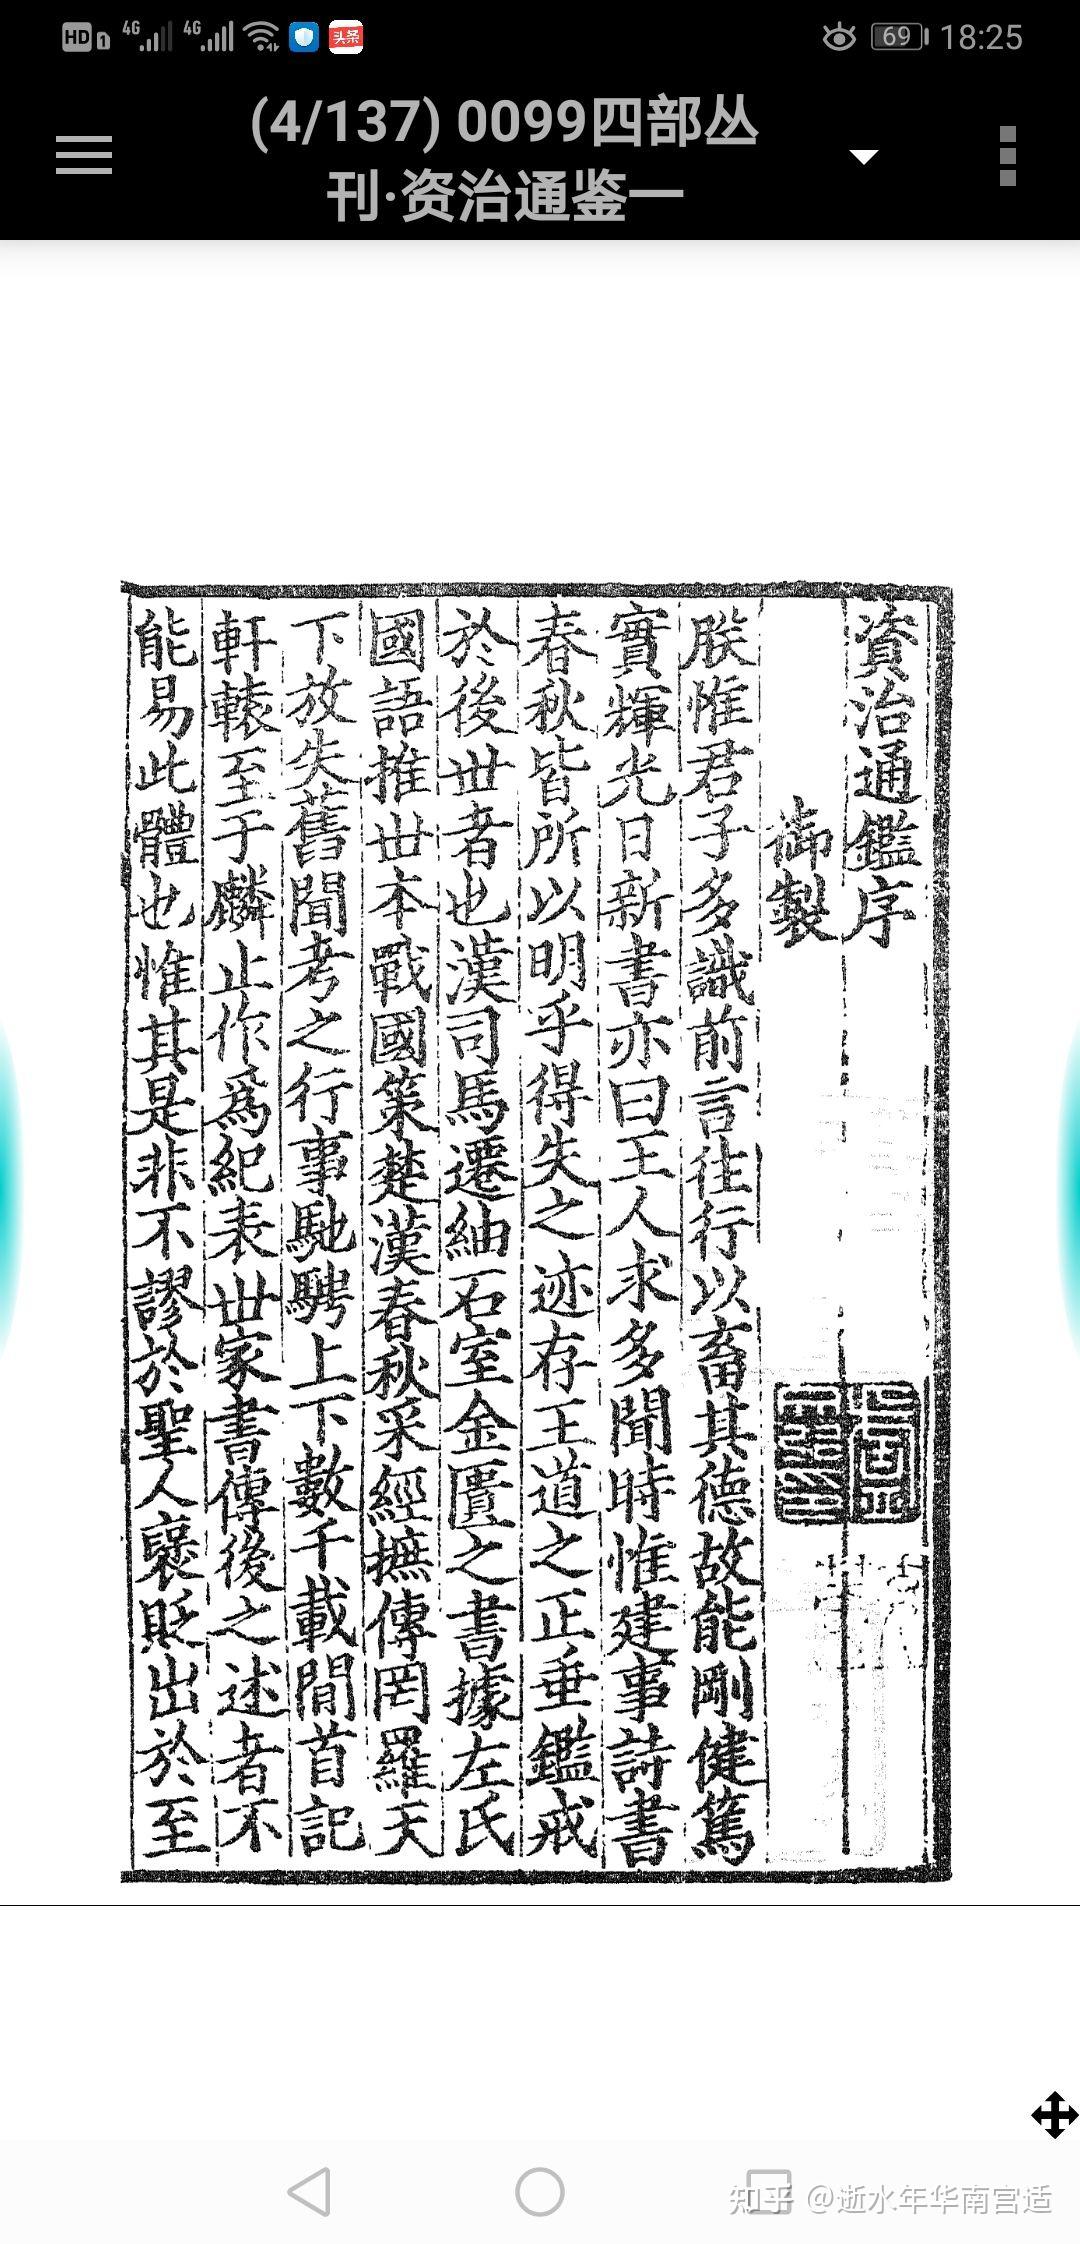 HD 1 4G 4G 头条 69 18:25
(4/137) 0099四部丛
刊·资治通鉴一
資治通鑑序
御製
朕惟君子多識前言往行以畜其德故能剛健篤
實輝光日新書亦曰王人求多聞時惟建事詩書
春秋皆所以明乎得失之迹存王道之正垂鑑戒
於後世者也漢司馬遷紬石室金匱之書據左氏
國語推世本戰國策楚漢春秋采經摭傳罔羅天
下放失舊聞考之行事馳騁上下數千載間首記
軒轅至于麟止作爲紀表世家書傳後之述者不
能易此體也惟其是非不謬於聖人褒貶出於至
知乎 @逝水年华南宫适